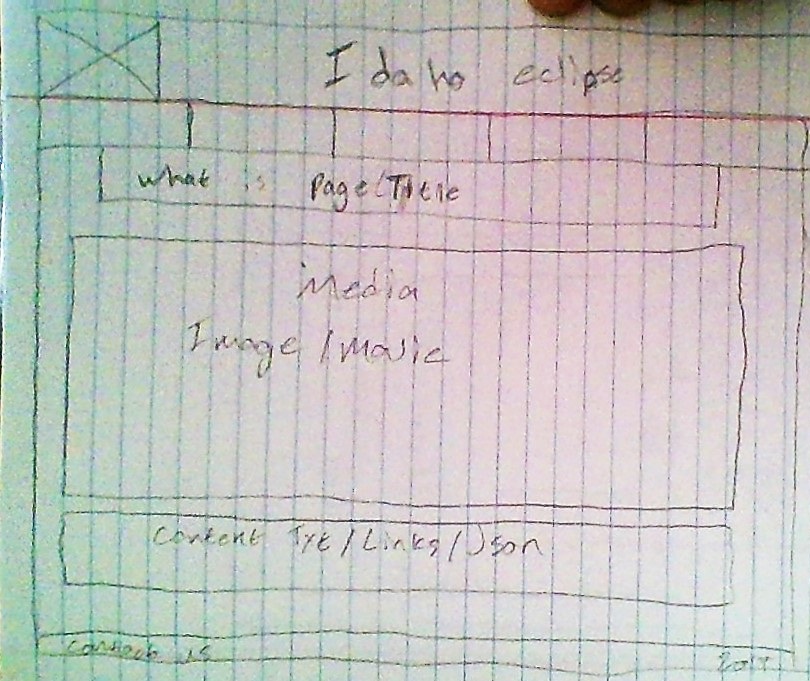 Idaho eclipse
What is Page/Title
Media
Image/Movie
Content Txt/Links/Json
2017